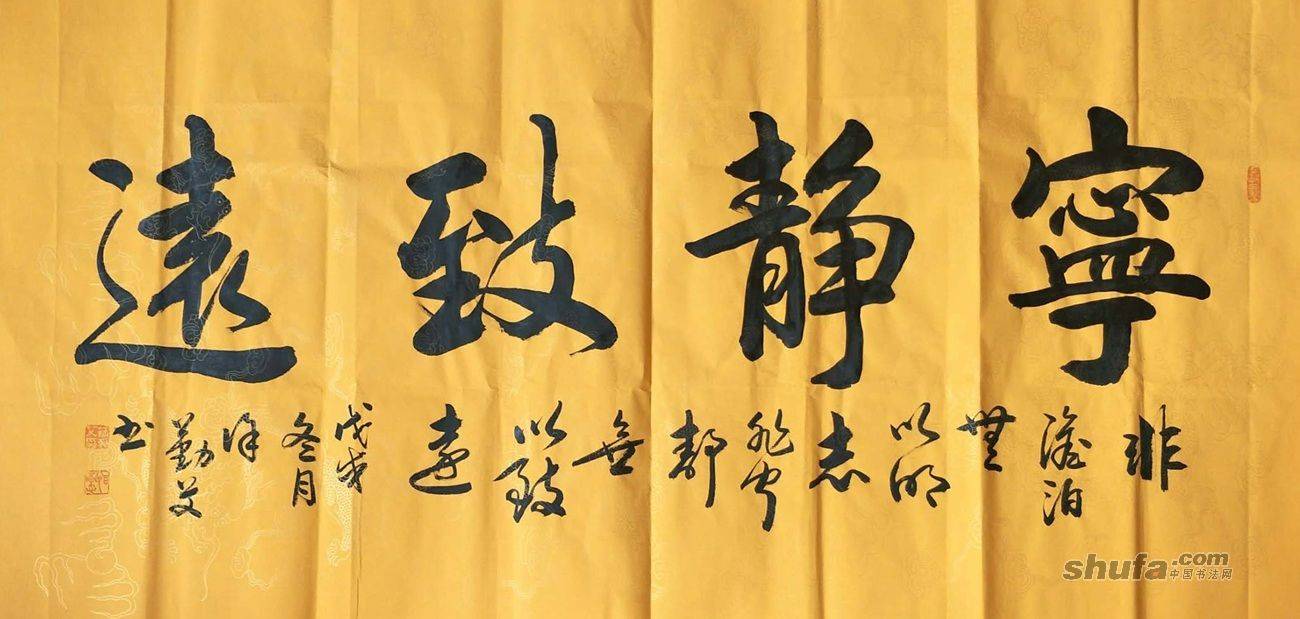 寧靜致遠
非澹泊無以明志非寧靜無以致遠
戊戌冬月
徐勤艾書
shufa.com
中国书法网